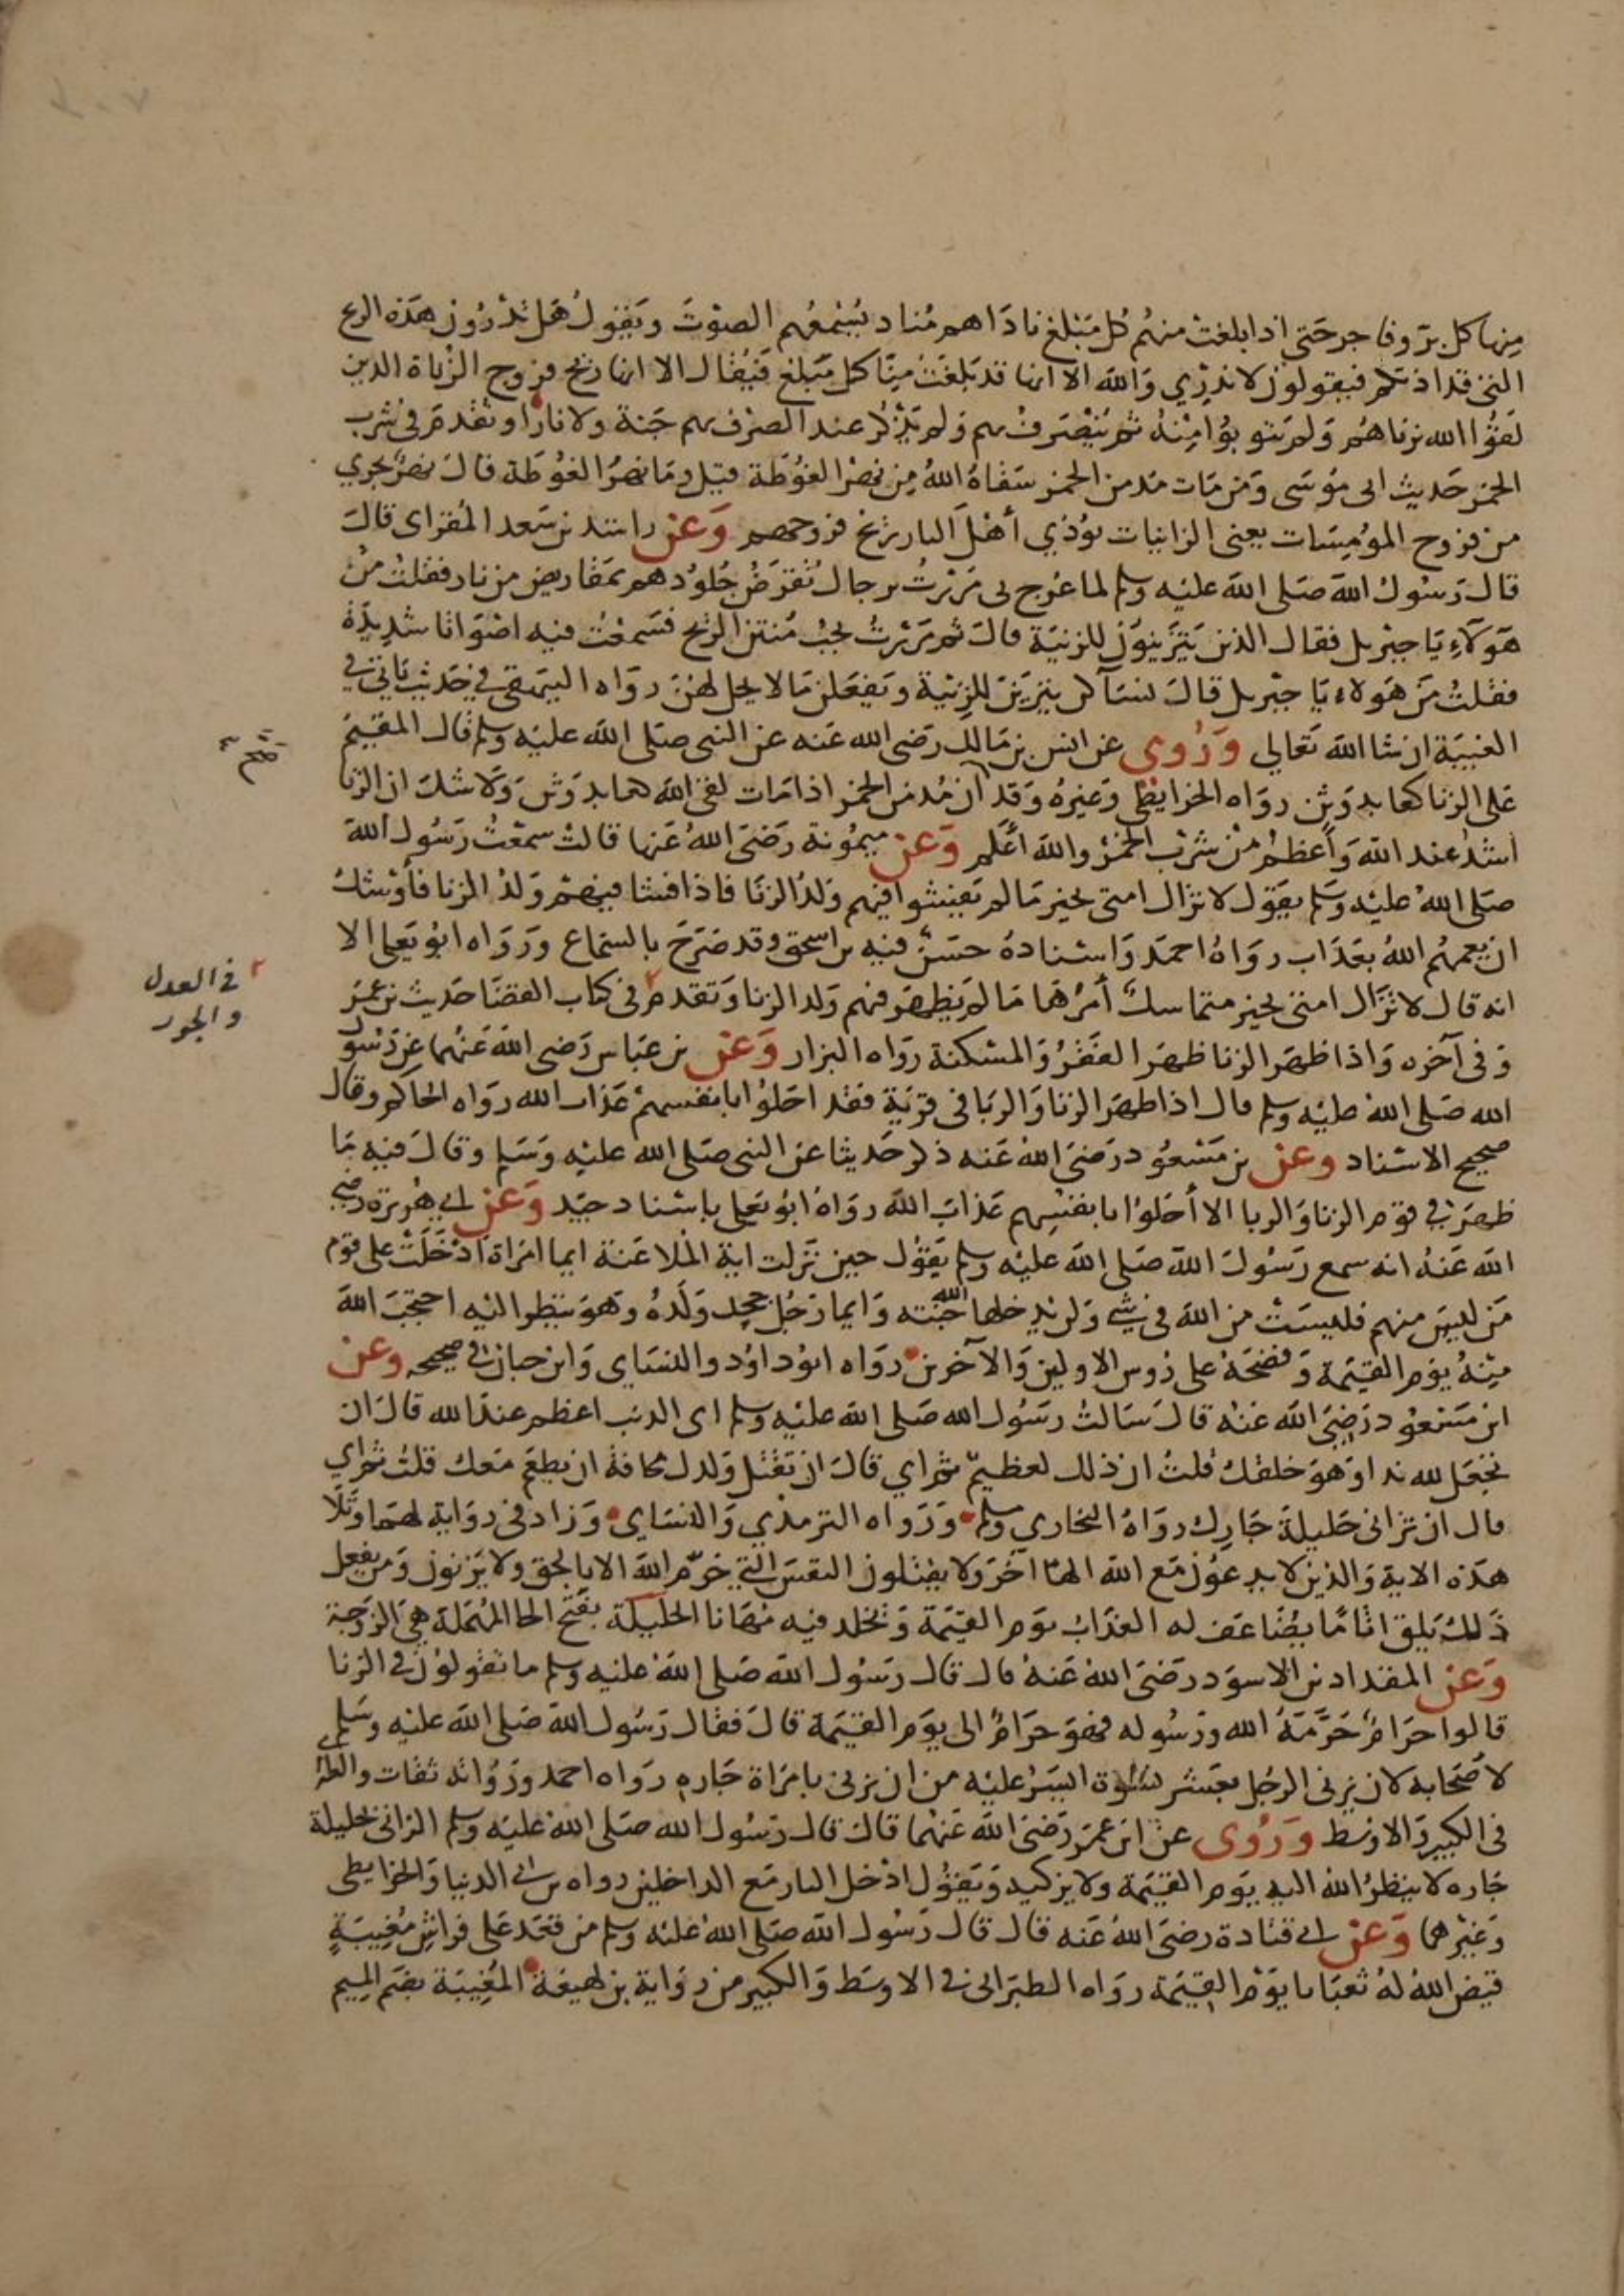 منها كل بر وفاجر حتى اذا بلغت منهم كل مبلغ ناداهم مناد يسمعهم الصوت ويقول هل تدرون هذه الريح
التي قد اذتكم فيقولون لا ندري والله الا انها قد بلغت منا كل مبلغ فيقال الا انها ريح فروج الزناة الذين
لقوا الله بزناهم ولم يتوبوا منه ثم ينصرف بهم ولم يذكر عند الصرف بهم جنة ولا نارا وتقدم في شرب
الخمر حديث ابى موسى ومن مات مدمن الخمر سقاه الله من نهر الغوطة قيل وما نهر الغوطة قال نهر يجري
من فروج المومسات يعنى الزانيات يوذي أهل النار ريح فروجهم وعن راشد بن سعد المقراى قال
قال رسول الله صلى الله عليه وسلم لما عرج بى مررت برجال تقرض جلودهم بمقاريض من نار فقلت من
هولاء يا جبريل فقال الذين يتزينون للزنية قال ثم مررت بجب منتن الريح فسمعت فيه اصواتا شديدة
فقلت من هولاء يا جبريل قال نساكن يتزين للزنية ويفعلن ما لا يحل لهن رواه البيهقي في حديث ياتي في
الغيبة ان شا الله تعالى وروى عن انس بن مالك رضى الله عنه عن النبى صلى الله عليه وسلم قال المقيم
صح
على الزنا كعابد وثن رواه الخرايطي وغيره وقد ان مدمن الخمر اذا مات لقى الله كعابد وثن ولا شك ان الزنا
اشد عند الله وأعظم من شرب الخمر والله أعلم وعن ميمونة رضى الله عنها قالت سمعت رسول الله
صلى الله عليه وسلم يقول لا تزال امتى بخير ما لم يفشوا فيهم ولد الزنا فاذا فشا فيهم ولد الزنا فأوشك
ان يعمهم الله بعذاب رواه احمد واسناده حسن فيه بن اسحق وقد صرح بالسماع ورواه ابو يعلى الا
انه قال لا تزال امتى بخير متماسك أمرها ما لم يظهر فيهم ولد الزنا وتقدم في كتاب القضا حديث بن عمر
٢ في العدل
والجور
وفى آخره واذا ظهر الزنا ظهر الفقر والمسكنة رواه البزار وعن بن عباس رضى الله عنهما عن رسول
الله صلى الله عليه وسلم قال اذا ظهر الزنا والربا فى قرية فقد احلوا بانفسهم عذاب الله رواه الحاكم وقال
صحيح الاسناد وعن بن مسعود رضى الله عنه ذكر حديثا عن النبى صلى الله عليه وسلم وقال فيه ما
ظهر في قوم الزنا والربا الا أحلوا بانفسهم عذاب الله رواه ابو يعلى باسناد جيد وعن ابي هريرة رضي
الله عنه انه سمع رسول الله صلى الله عليه وسلم يقول حين نزلت اية الملاعنة ايما امراة ادخلت على قوم
من ليس منهم فليست من الله في شي ولن يدخلها الله جنته وايما رجل جحد ولده وهو ينظر اليه احتجب الله
منه يوم القيمة وفضحه على روس الاولين والآخرين رواه ابو داود والنساى وابن حبان في صحيحه وعن
ابن مسعود رضى الله عنه قال سالت رسول الله صلى الله عليه وسلم اى الذنب اعظم عند الله قال ان
تجعل لله ندا وهو خلقك قلت ان ذلك لعظيم ثم اي قال ان تقتل ولدك مخافة ان يطعم معك قلت ثم اي
قال ان تزانى حليلة جارك رواه البخاري ومسلم ورواه الترمذي والنساى وزاد فى رواية لهما وتلا
هذه الاية والذين لا يدعون مع الله الها آخر ولا يقتلون النفس التي حرم الله الا بالحق ولا يزنون ومن يفعل
ذلك يلق اثاما يضاعف له العذاب يوم القيمة ويخلد فيه مهانا الحليلة بفتح الحا المهملة هي الزوجة
وعن المقداد بن الاسود رضى الله عنه قال قال رسول الله صلى الله عليه وسلم ما تقولون في الزنا
قالوا حرام حرمه الله ورسوله فهو حرام الى يوم القيمة قال فقال رسول الله صلى الله عليه وسلم
لاصحابه لان يزنى الرجل بعشر نسوة ايسر عليه من ان يزنى بامراة جاره رواه احمد ورواته ثقات والطبر
فى الكبير والاوسط وروى عن ابن عمر رضى الله عنهما قال قال رسول الله صلى الله عليه وسلم الزانى بحليلة
جاره لا ينظر الله اليه يوم القيمة ولا يزكيه ويقول ادخل النار مع الداخلين رواه بن ابى الدنيا والخرايطى
وغيرهما وعن ابي قتادة رضى الله عنه قال قال رسول الله صلى الله عليه وسلم من قعد على فراش مغيبة
قيض الله له ثعبانا يوم القيمة رواه الطبرانى فى الاوسط والكبير من رواية بن لهيعة المغيبة بضم الميم